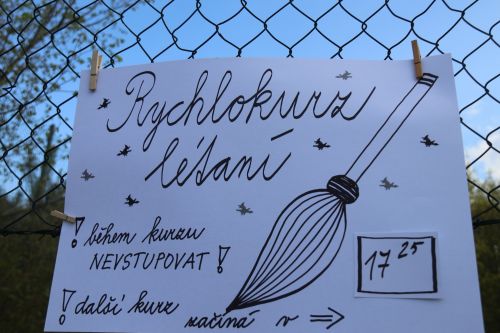 Rychlokurz
létaní
! během kurzu
NEVSTUPOVAT !
! další kurz
začíná v ⇒
17 25